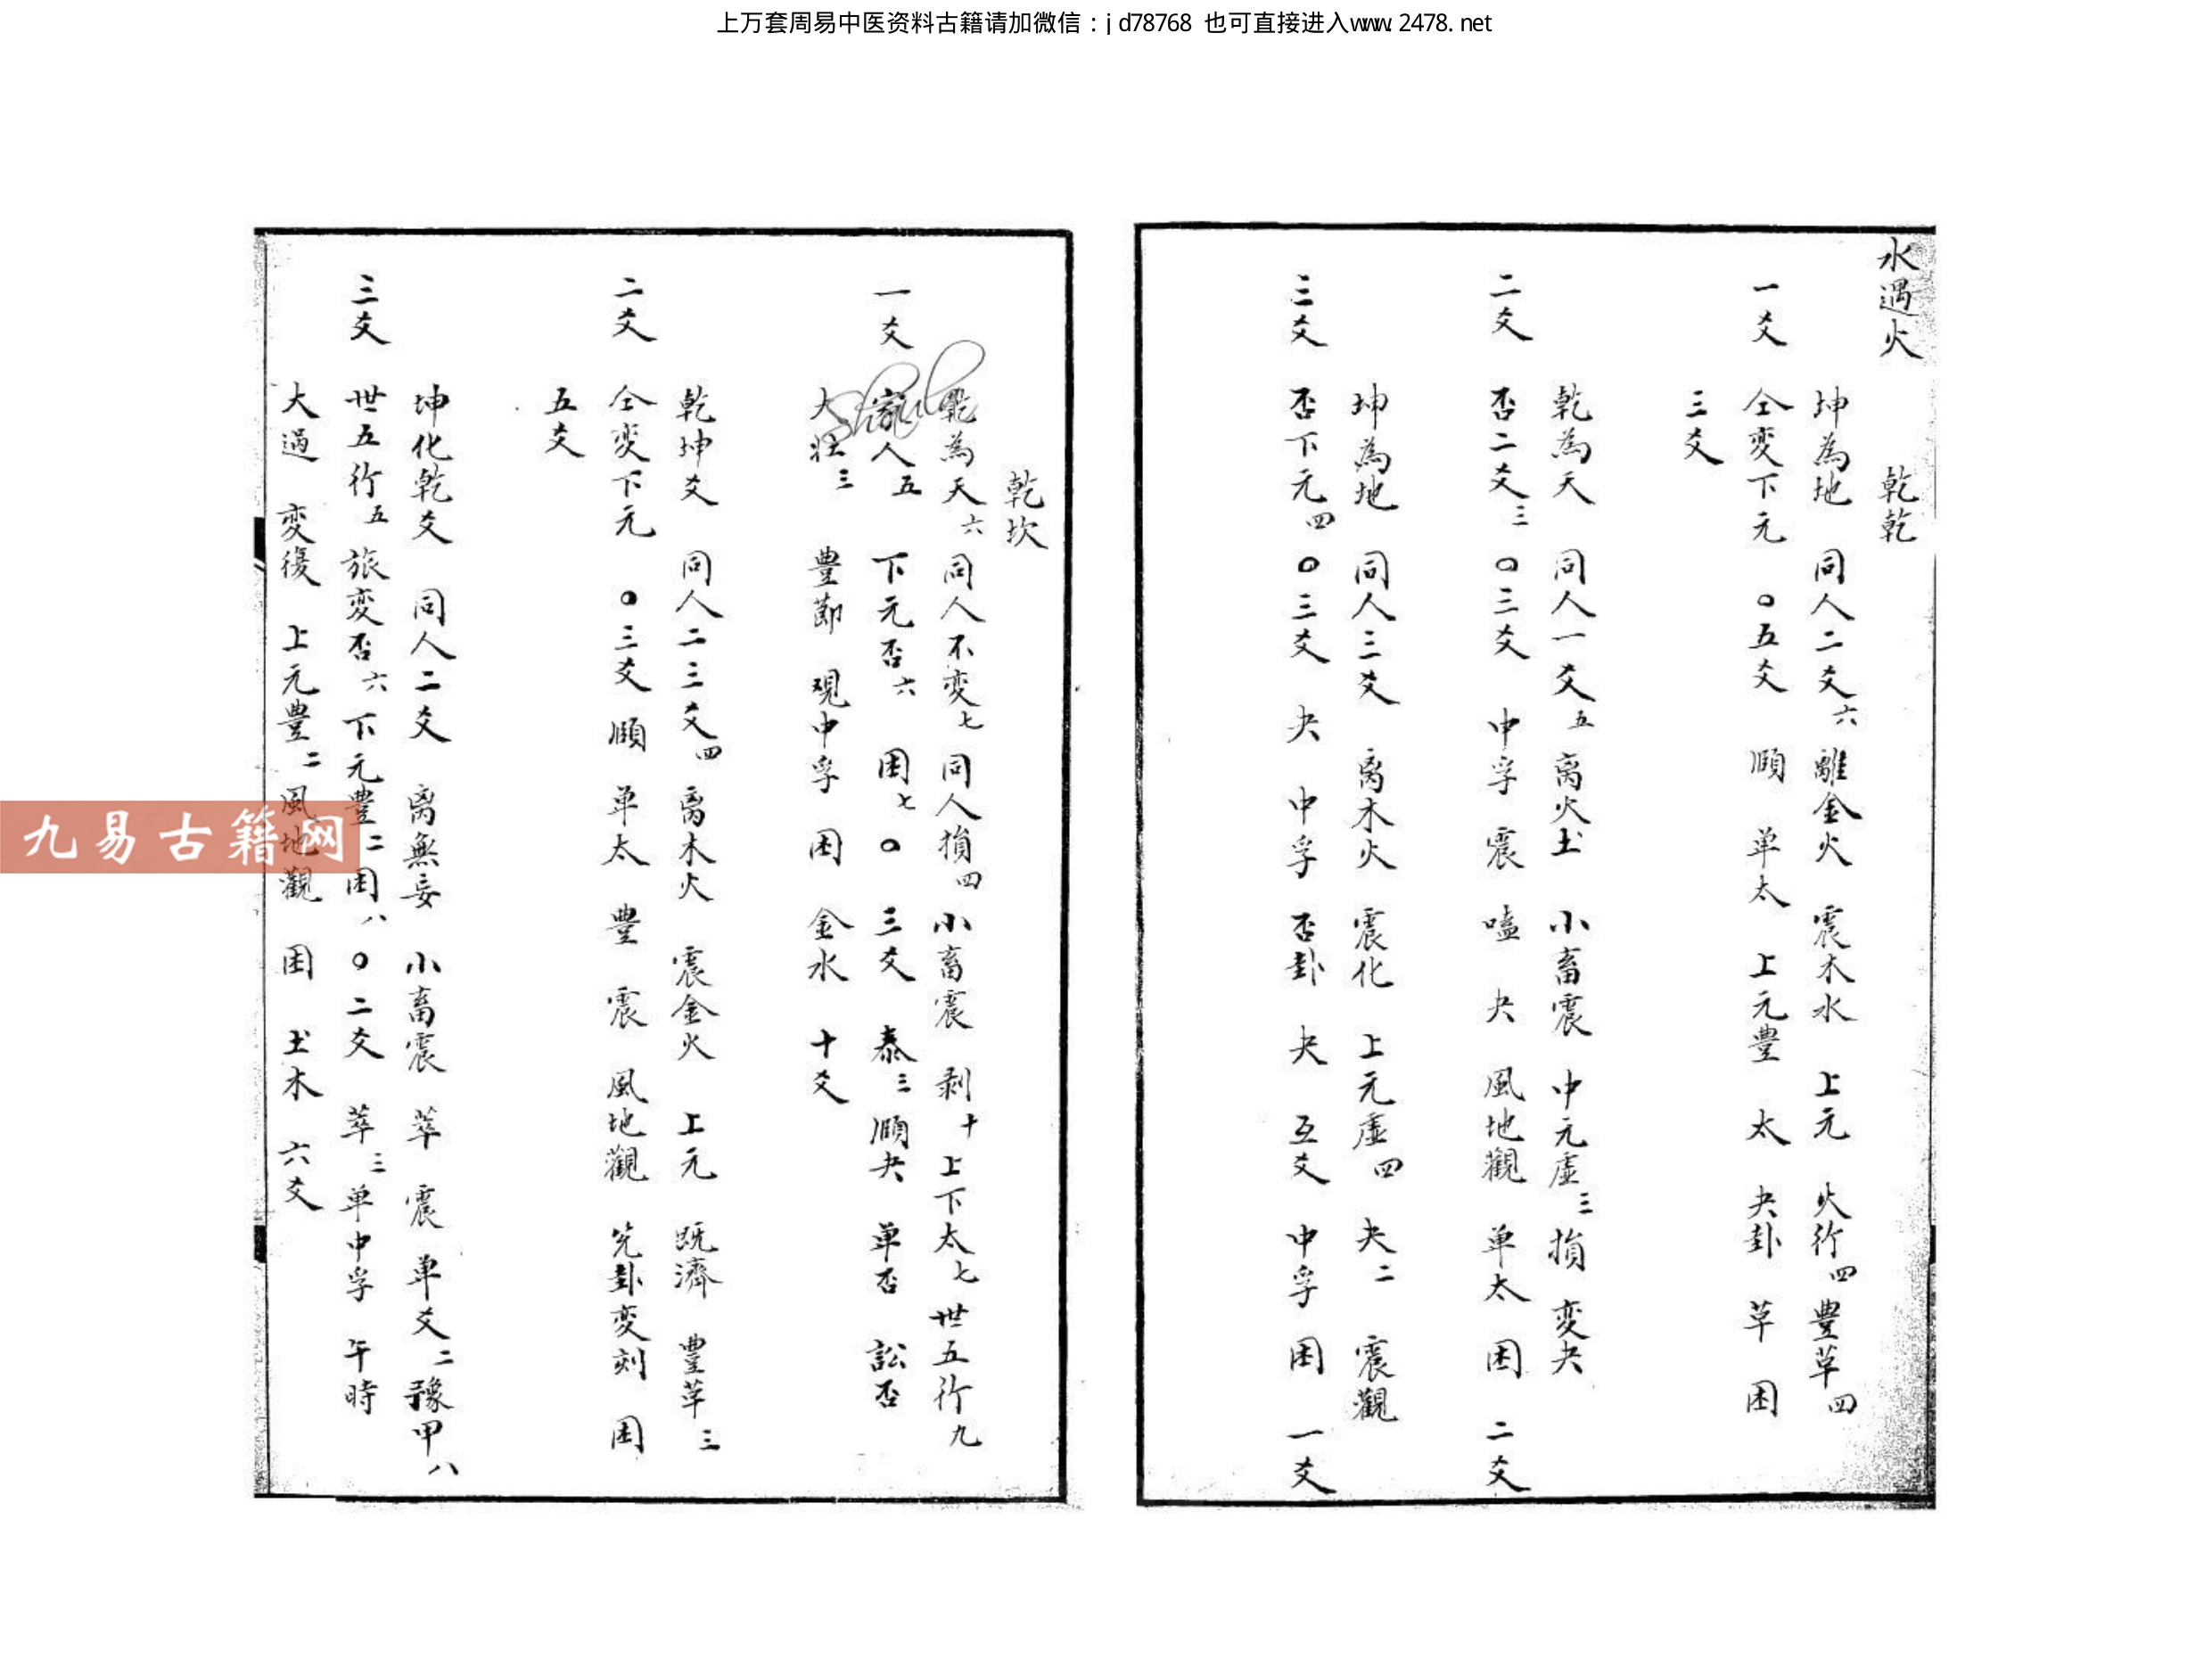 上万套周易中医资料古籍请加微信：jd78768 也可直接进入www.2478.net
水遇火 乾乾
坤為地 同人二爻六 離金火 震木水 上元 火行四 豊革四
一爻 仝変下元 〇五爻 頤 单太 上元豊 太 夬卦 革 困
三爻
乾為天 同人一爻五 离火土 小畜震 中元虚三 損 変夬
二爻 否二爻三 〇三爻 中孚 震 嗑 夬 風地觀 单太 困 二爻
坤為地 同人三爻 离木火 震化 上元虚四 夬二 震觀
三爻 否下元四 〇三爻 夬 中孚 否卦 夬 互爻 中孚 困 一爻
乾坎
乾為天六 同人不変七 同人損四 小畜震 剥十 上下太七 世五行九
一爻 家人五 下元否六 困七 〇 三爻 泰三 頤夬 单否 訟否
大壮三 豊節 观中孚 困 金水 十爻
乾坤爻 同人二三爻四 离木火 震金火 上元 既濟 豊革三
二爻 仝変下元 〇三爻 頤 单太 豊 震 風地觀 先卦変刻 困
五爻
坤化乾爻 同人二爻 离無妄 小畜震 萃 震 单爻二 豫甲八
三爻 世五行五 旅変否六 下元豊二 困八 〇二爻 萃三 单中孚 午時
大過 変復 上元豊二 風地觀 困 土木 六爻
九易古籍网